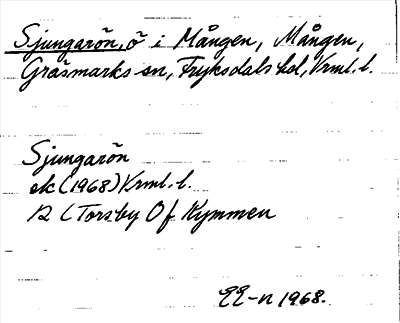 Sjungarön, ö i Mången, Mången,
Gräsmarks sn, Fryksdals hd, Vrml. l.
Sjungarön
ek (1968) Vrml. l.
12 C Torsby Of Kymmen
EE-n 1968.